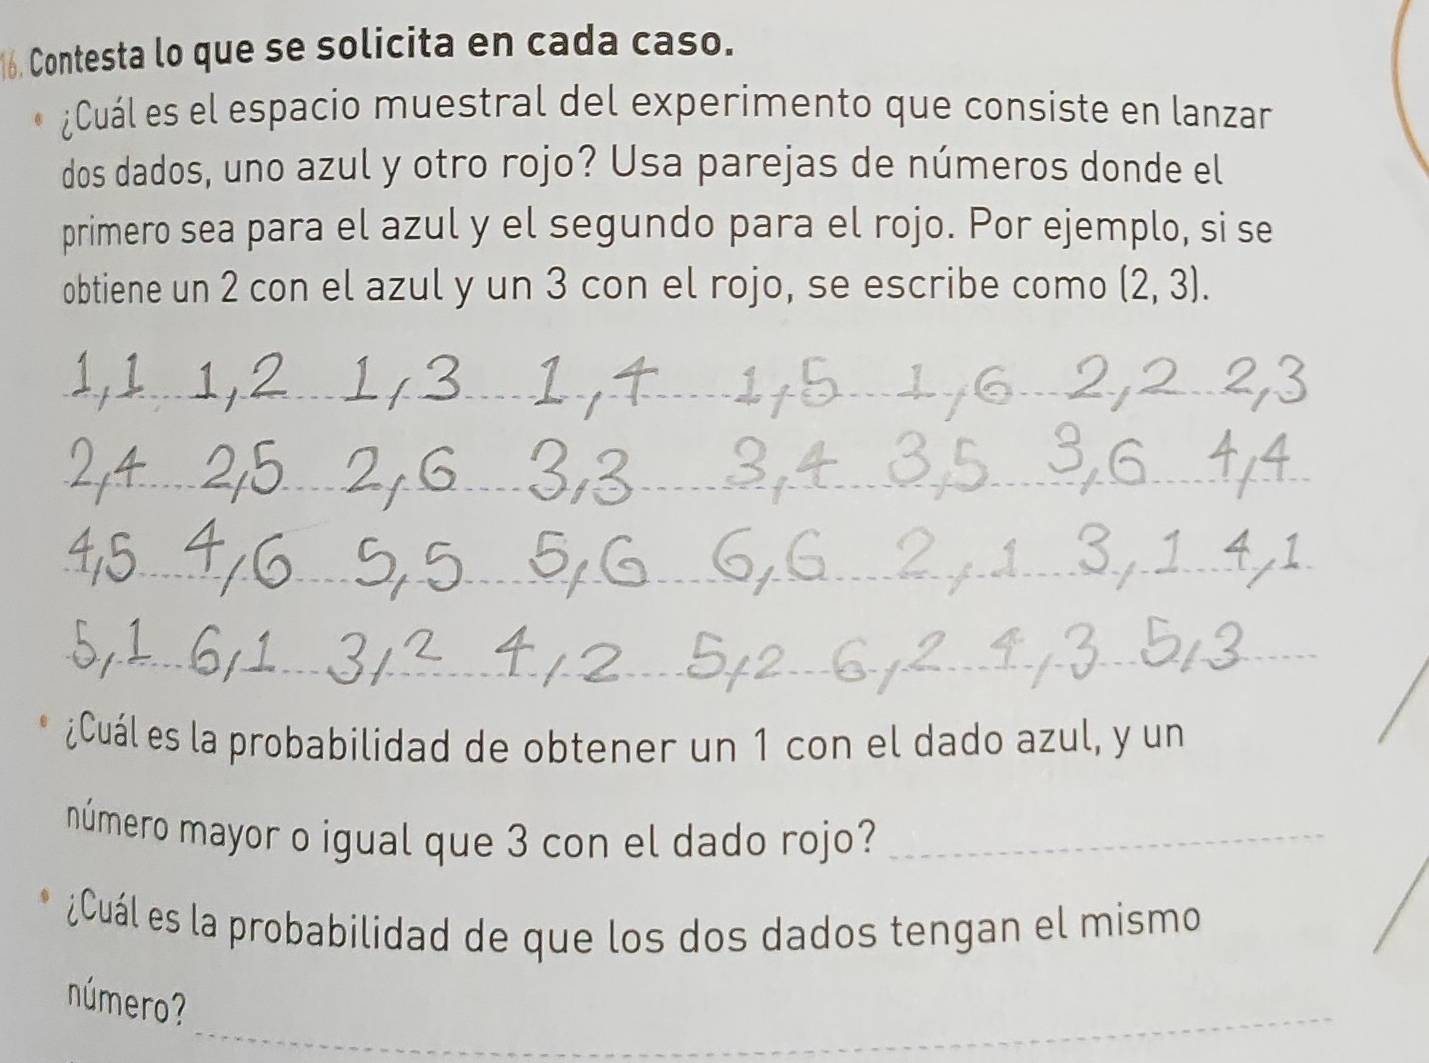 16. Contesta lo que se solicita en cada caso.
• ¿Cuál es el espacio muestral del experimento que consiste en lanzar
dos dados, uno azul y otro rojo? Usa parejas de números donde el
primero sea para el azul y el segundo para el rojo. Por ejemplo, si se
obtiene un 2 con el azul y un 3 con el rojo, se escribe como (2, 3).
1,1 1,2 1,3 1,4 1,5 1,6 2,2 2,3
2,4 2,5 2,6 3,3 3,4 3,5 3,6 4,4
4,5 4,6 5,5 5,6 6,6 2,1 3,1 4,1
5,1 6,1 3,2 4,2 5,2 6,2 4,3 5,3
• ¿Cuál es la probabilidad de obtener un 1 con el dado azul, y un
número mayor o igual que 3 con el dado rojo?
• ¿Cuál es la probabilidad de que los dos dados tengan el mismo
número?